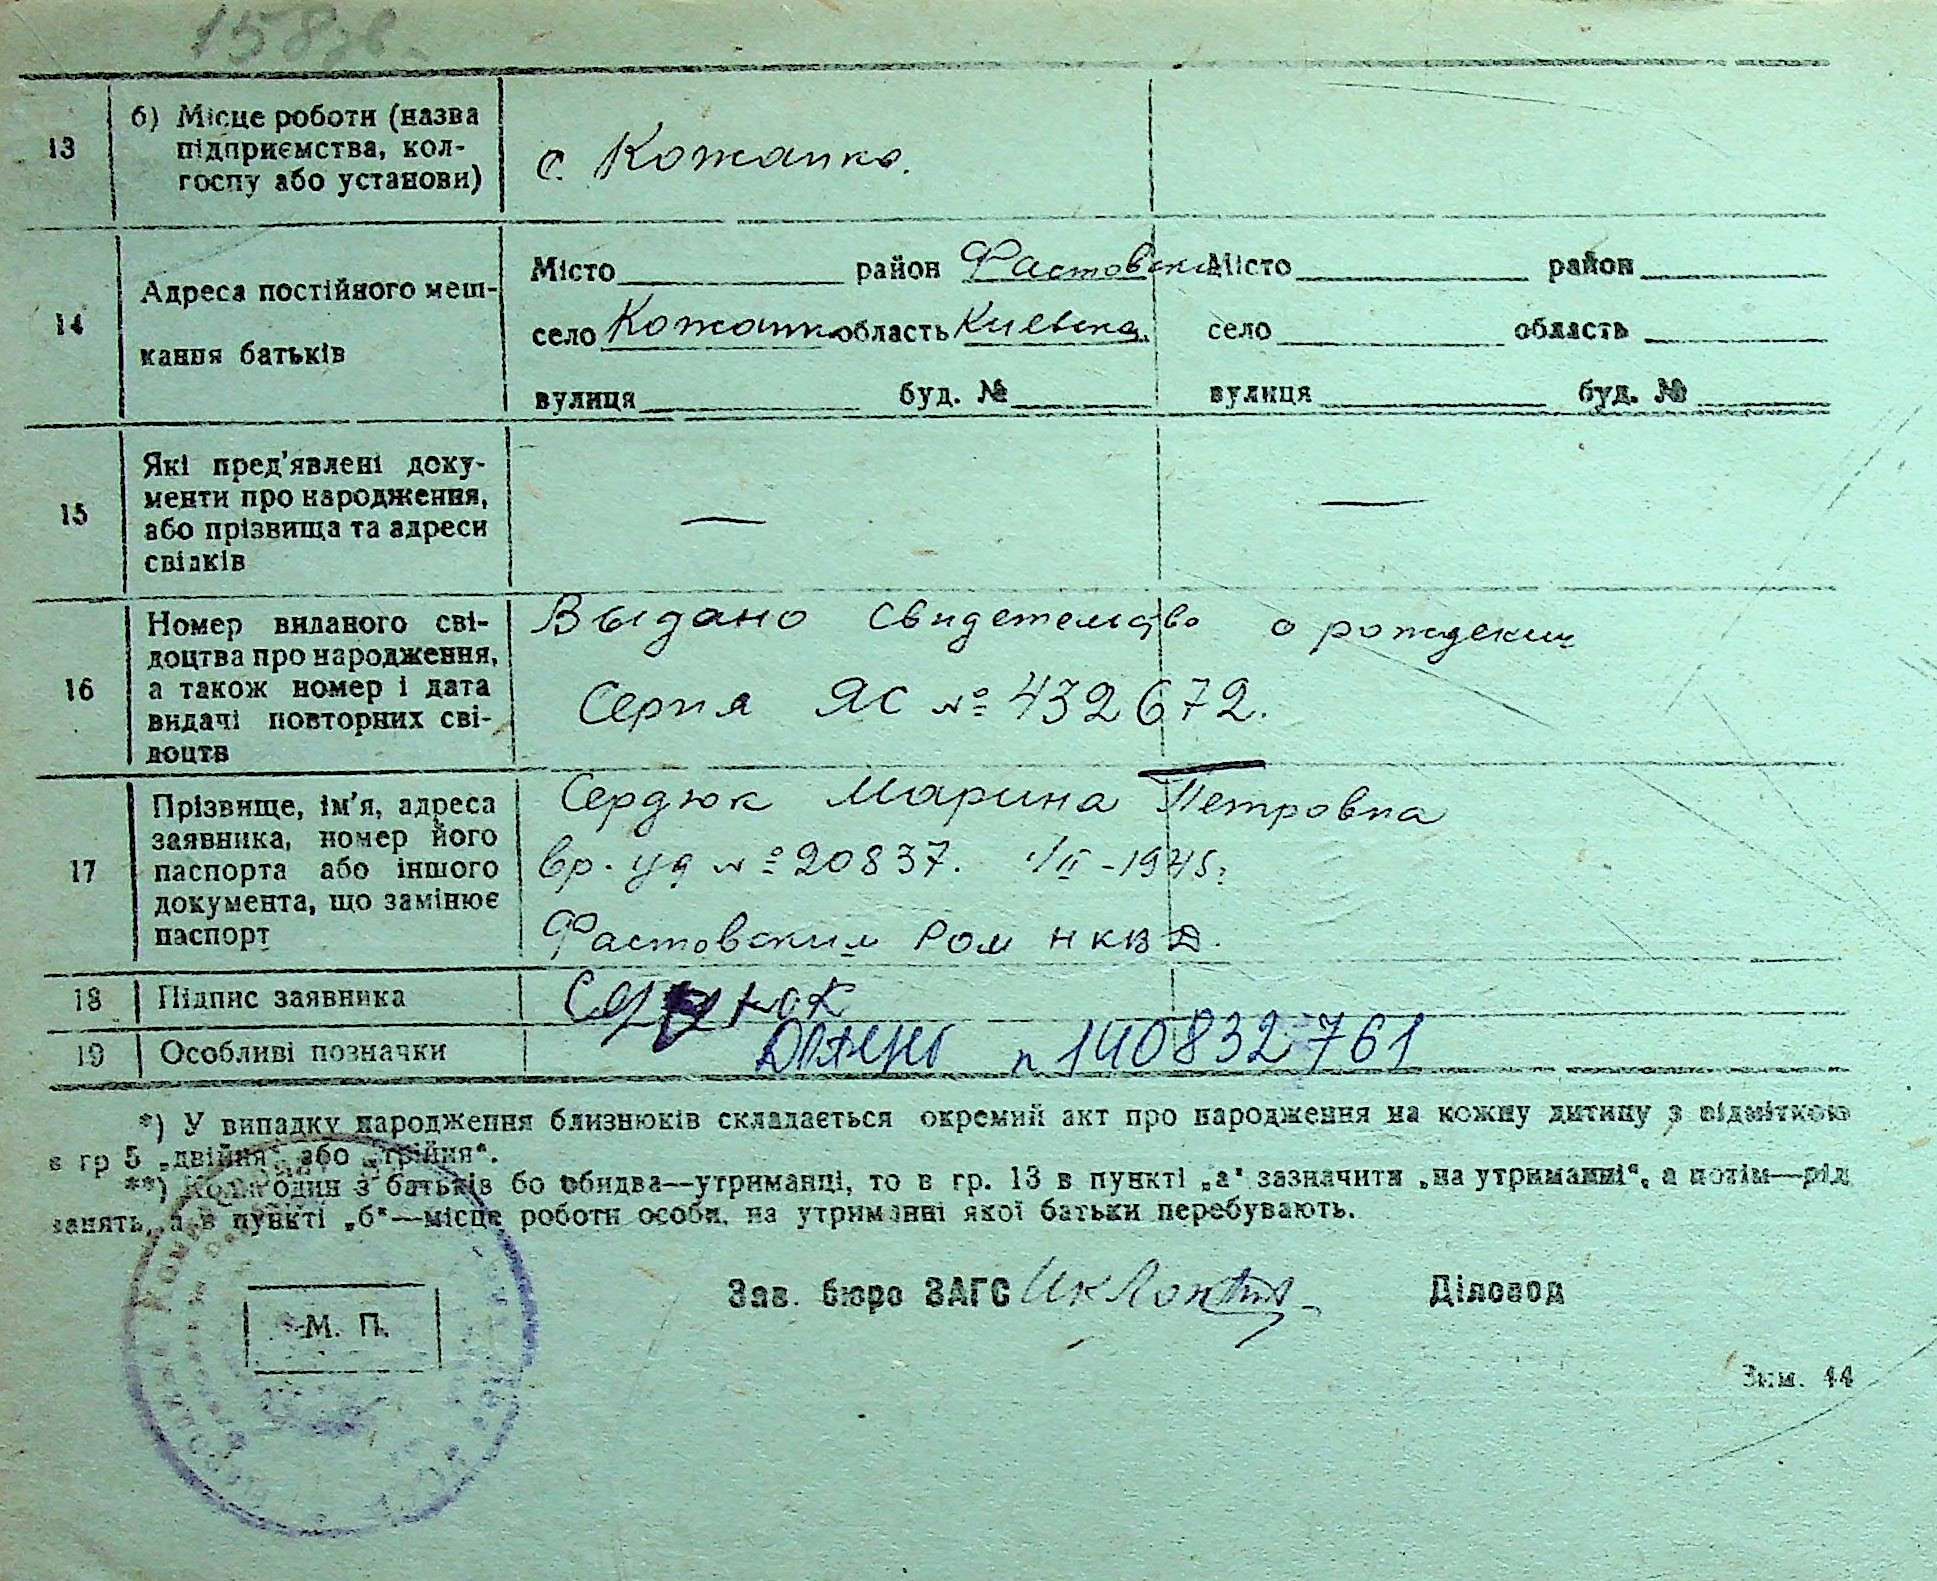 158зв.
13 б) Місце роботи (назва
підприємства, кол-
госпу або установи)
с. Кожанко.
14 Адреса постійного меш-
кання батьків
Місто район Фастовский Місто район
село Кожанко область Киевска село область
вулиця буд. № вулиця буд. №
15 Які пред'явлені доку-
менти про народження,
або прізвища та адреси
свідків
— —
16 Номер виданого сві-
доцтва про народження,
а також номер і дата
видачі повторних сві-
доцтв
Выдано свидетельство о рождении
Серия ЯС № 432672.
17 Прізвище, ім'я, адреса
заявника, номер його
паспорта або іншого
документа, що замінює
паспорт
Сердюк Марина Петровна
вр. уд № 20837. 1/II - 1945г.
Фастовским Ром НКВД.
18 Підпис заявника Сердюк
19 Особливі позначки 140832761
*) У випадку народження близнюків складається окремий акт про народження на кожну дитину з відміткою
в гр 5 „двійня“ або „трійня“.
**) Коли один з батьків бо обидва—утриманці, то в гр. 13 в пункті „а“ зазначити „на утриманні“, а потім—рід
занять, а в пункті „б“—місце роботи особи, на утриманні якої батьки перебувають.
Зав. бюро ЗАГС Діловод
М. П.
Зам. 44